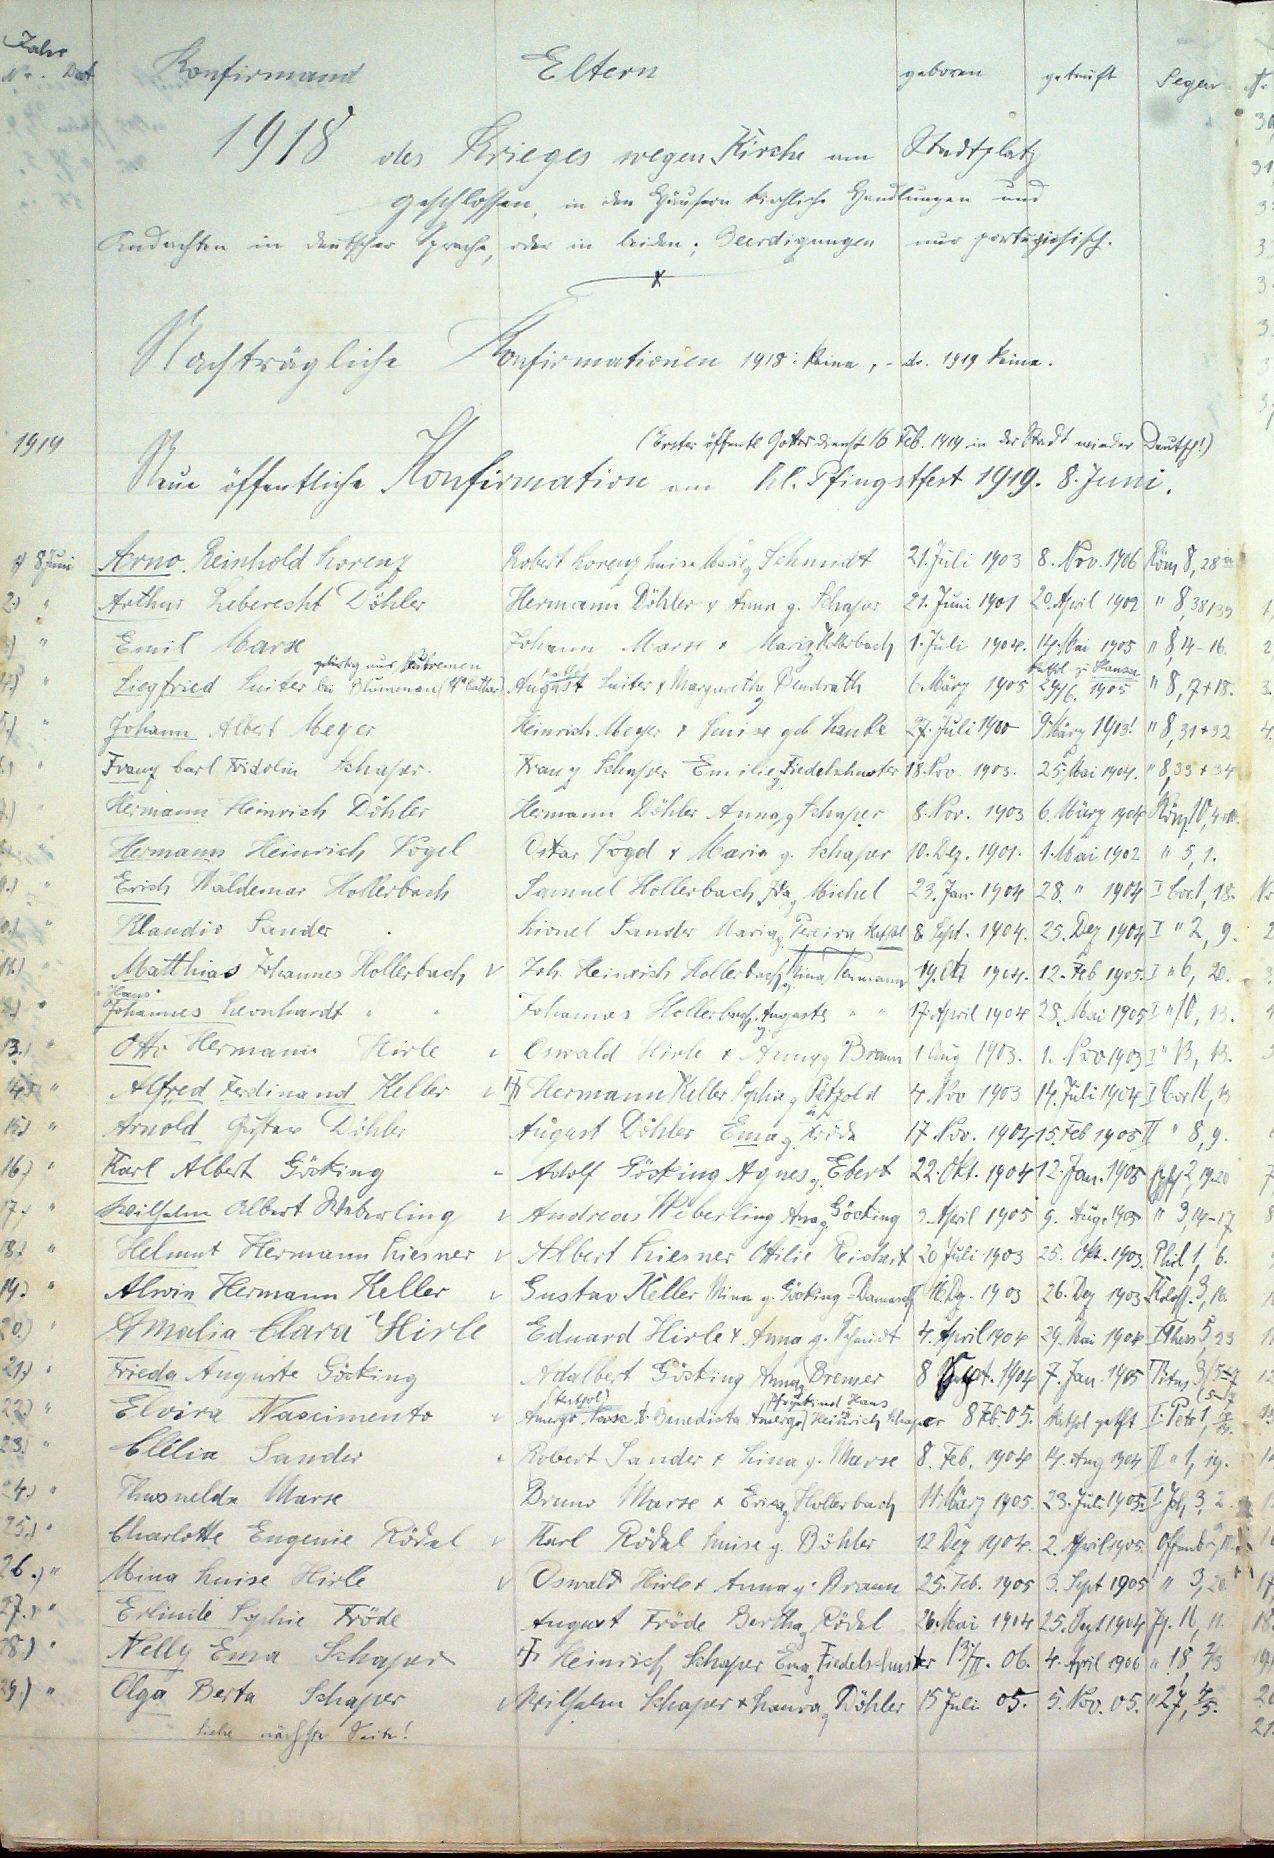 Jahr
Nr. Dat Konfirmand Eltern geboren getauft Segen
1918 des Krieges wegen Kirche am Stadtplatz
geschlossen, in den Häusern kirchliche Handlungen und
Andachten in deutscher Sprache, oder in beiden; Beerdigungen nur portugiesisch.
Nachträgliche Konfirmationen 1918: keine, - do. 1919 keine.
1919 (Erster öffentl Gottesdienst 16 Feb. 1919 in der Stadt wieder Deutsch!)
Neue öffentliche Konfirmation am hl. Pfingstfest 1919. 8. Juni.
1) 8 Juni Arno Reinhold Lorenz Robert Lorenz Luise Schmidt 21. Juli 1903 8. Nov. 1906 Röm 8, 28
2.) " Arthur Leberecht Döhler Hermann Döhler & Anna g. Schaper 21. Juni 1901 20 April 1902 " 8, 38/39
3) " Emil Marse Johann Marse & Maria g Hollerbach 1. Juli 1904. 14. Mai 1905 " 8, 14-16.
gebürtig aus kathol z. Hansa
4.) " Siegfried Suiter bei Blumenau August Suiter & Margaretha g 6. März 1905 29/6. 1905 " 8, 7+18.
5.) " Johann Albert Meyer Heinrich Meyer & Luise geb Hanke 27. Juli 1900 9 März 1913! " 8, 31+32
6.) " Franz Carl Fridolin Schaper. Franz Schaper Emilie g. Fiedelshuster 18. Nov. 1903. 25. Mai 1904. " 8, 33+34
7.) " Hermann Heinrich Döhler Hermann Döhler Anna g Schaper 8. Nov. 1903 6. März 1904 Röm. 10, 4
8.) " Hermann Heinrich Vogel Oskar Vogel & Maria g. Schaper 10. Dez. 1901. 1. Mai 1902 " 5, 1.
9.) " Erich Waldemar Hollerbach Samuel Hollerbach Ida g Michel 23. Jan. 1904 28. " 1904 I Cor 1, 18.
10.) " Klaudio Sander Lionel Sander Maria g. Pereira kathol 8. Sept. 1904. 25. Dez 1904 I " 2, 9.
11.) " Matthias Johannes Hollerbach v Joh. Heinrich Hollerbach, Mina g 19. Okt 1904. 12. Feb 1905. I " 6, 20.
Hans
12.) " Johannes Leonhardt " " Johannes Hollerbach, Auguste g. " " 17. April 1904 28. Mai 1905 I " 10, 13.
13.) " Otto Hermann Hirle v Oswald Hirle & Anna g Braun 1 Aug 1903. 1. Nov 1903 I " 13, 13.
14.) " Alfred Ferdinand Keller v Hermann Keller Sophie g Petzold 4. Nov 1903 14. Juli 1904 I Cor 16, 13
15.) " Arnold Gustav Döhler August Döhler Ema g. Fröde 17. Nov. 1904 15. Feb 1905 II " 8, 9.
16.) " Karl Albert Göcking Adolf Göcking Agnes g. Ebert 22. Okt. 1904 12. Jan. 1905 Eph 2, 19.20
17.) " Wilhelm Albert Weberling v Andreas Weberling Anna g Göcking 3. April 1905 9. Aug. 1905 " 3, 14-17
18.) " Helmut Hermann Liesner v Albert Liesner Otilie Reichert 20 Juli 1903 25. Okt. 1903. Phil 1, 6.
19.) " Alwin Hermann Keller v Gustav Keller Mina g. Göcking 16. Dez. 1903 26. Dez 1903 Koloss. 3, 16.
20.) " Amalia Clara Hirle Eduard Hirle & Anna g. Schmidt 4. April 1904 29. Mai 1904 I Thess 5, 23
21.) " Frieda Auguste Göcking Adalbert Göcking Anna g Bremer 8 Sept. 1904 7. Jan. 1905 Titus 3, 5-7
(kathol) Pflegekind Hans
22.) " Elvira Nascimento & Benedicta Heinrich Schaper 8 Feb. 05. kathol getft I. Petr 1,
23.) " Clélia Sander v Robert Sander & Lina g. Marse 8. Feb. 1904 14. Aug 1904 II " 1, 19.
24.) " Thusnelda Marse Bruno Marse & Erika g Hollerbach 11. März 1905. 23. Juli 1905. I Joh, 3, 2.
25.) " Charlotte Eugenie Rödel v Karl Rödel Luise g. Böhler 12 Dez 1904. 2. April 1905. Offenb 2,
26.) " Mina Luise Hirle v Oswald Hirle & Anna g. Braun 25. Feb. 1905 3. Sept 1905 " 3, 20.
27.) " Erlinde Sophie Fröde August Fröde Bertha g Rödel 26. Mai 1904 25. Sept 1904 Ps. 16, 11.
28.) " Nelly Ema Schaper Heinrich Schaper Ema g Fiedelshuster 13/II. 06. 4. April 1906 " 18, 2/3
29.) " Olga Berta Schaper v Wilhelm Schaper & Laura g Döhler 15 Juli 05. 5. Nov. 05. " 27, 4/5.
siehe nächste Seite!